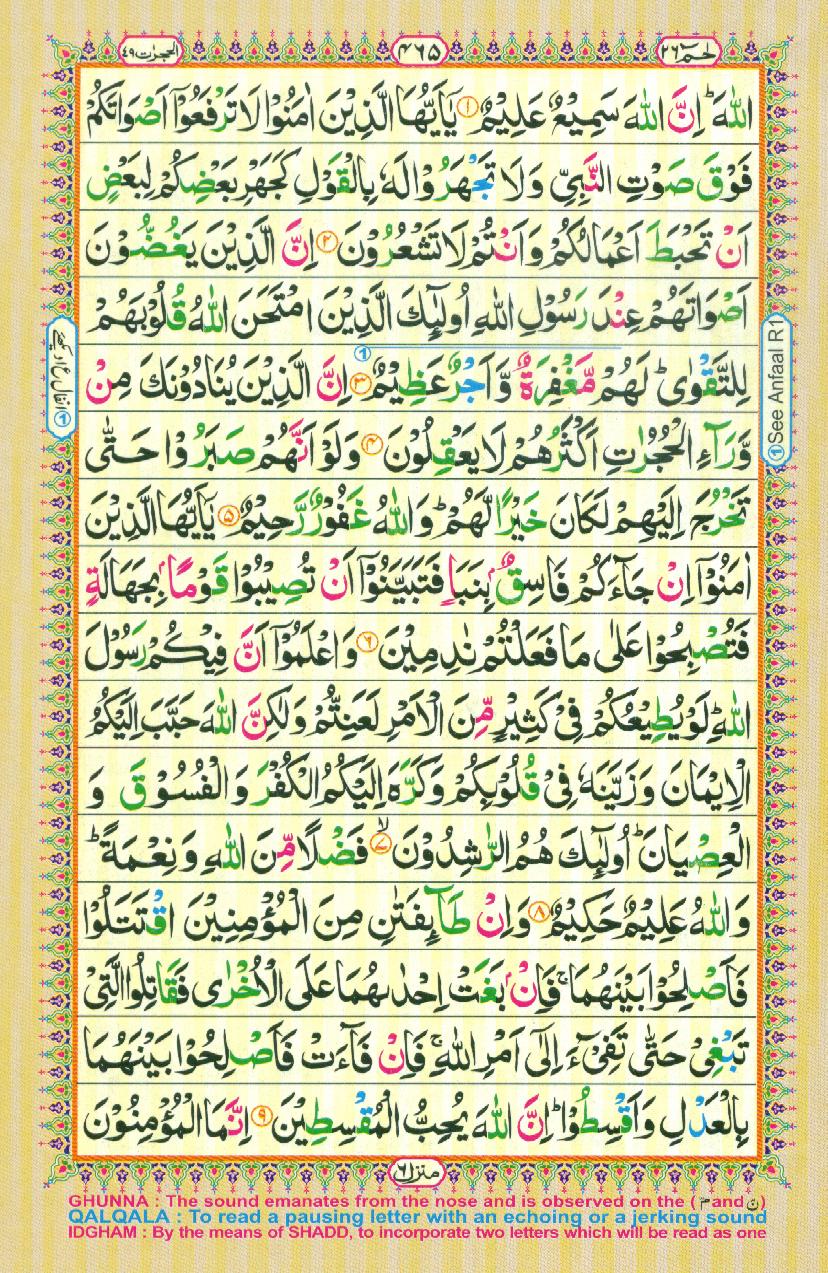 حٰمٓ ٢٦
٤٦٥
الحجرات ٤٩
اللّٰهَ ؕ اِنَّ اللّٰهَ سَمِیْعٌ عَلِیْمٌ ۝۱ یٰۤاَیُّهَا الَّذِیْنَ اٰمَنُوْا لَا تَرْفَعُوْۤا اَصْوَاتَكُمْ
فَوْقَ صَوْتِ النَّبِیِّ وَ لَا تَجْهَرُوْا لَهٗ بِالْقَوْلِ كَجَهْرِ بَعْضِكُمْ لِبَعْضٍ
اَنْ تَحْبَطَ اَعْمَالُكُمْ وَ اَنْتُمْ لَا تَشْعُرُوْنَ ۝۲ اِنَّ الَّذِیْنَ یَغُضُّوْنَ
اَصْوَاتَهُمْ عِنْدَ رَسُوْلِ اللّٰهِ اُولٰٓىِٕكَ الَّذِیْنَ امْتَحَنَ اللّٰهُ قُلُوْبَهُمْ
لِلتَّقْوٰی ؕ لَهُمْ مَّغْفِرَةٌ وَّ اَجْرٌ عَظِیْمٌ ۝۳ اِنَّ الَّذِیْنَ یُنَادُوْنَكَ مِنْ
وَّرَآءِ الْحُجُرٰتِ اَكْثَرُهُمْ لَا یَعْقِلُوْنَ ۝۴ وَ لَوْ اَنَّهُمْ صَبَرُوْا حَتّٰی
تَخْرُجَ اِلَیْهِمْ لَكَانَ خَیْرًا لَّهُمْ ؕ وَ اللّٰهُ غَفُوْرٌ رَّحِیْمٌ ۝۵ یٰۤاَیُّهَا الَّذِیْنَ
اٰمَنُوْۤا اِنْ جَآءَكُمْ فَاسِقٌۢ بِنَبَاٍ فَتَبَیَّنُوْۤا اَنْ تُصِیْبُوْا قَوْمًۢا بِجَهَالَةٍ
فَتُصْبِحُوْا عَلٰی مَا فَعَلْتُمْ نٰدِمِیْنَ ۝۶ وَ اعْلَمُوْۤا اَنَّ فِیْكُمْ رَسُوْلَ
اللّٰهِ ؕ لَوْ یُطِیْعُكُمْ فِیْ كَثِیْرٍ مِّنَ الْاَمْرِ لَعَنِتُّمْ وَ لٰكِنَّ اللّٰهَ حَبَّبَ اِلَیْكُمُ
الْاِیْمَانَ وَ زَیَّنَهٗ فِیْ قُلُوْبِكُمْ وَ كَرَّهَ اِلَیْكُمُ الْكُفْرَ وَ الْفُسُوْقَ وَ
الْعِصْیَانَ ؕ اُولٰٓىِٕكَ هُمُ الرّٰشِدُوْنَ ۝۷ۙ فَضْلًا مِّنَ اللّٰهِ وَ نِعْمَةً ؕ
وَ اللّٰهُ عَلِیْمٌ حَكِیْمٌ ۝۸ وَ اِنْ طَآىِٕفَتٰنِ مِنَ الْمُؤْمِنِیْنَ اقْتَتَلُوْا
فَاَصْلِحُوْا بَیْنَهُمَا ۚ فَاِنْۢ بَغَتْ اِحْدٰىهُمَا عَلَی الْاُخْرٰی فَقَاتِلُوا الَّتِیْ
تَبْغِیْ حَتّٰی تَفِیْٓءَ اِلٰۤی اَمْرِ اللّٰهِ ۚ فَاِنْ فَآءَتْ فَاَصْلِحُوْا بَیْنَهُمَا
بِالْعَدْلِ وَ اَقْسِطُوْا ؕ اِنَّ اللّٰهَ یُحِبُّ الْمُقْسِطِیْنَ ۝۹ اِنَّمَا الْمُؤْمِنُوْنَ
① See Anfaal R1
① انفال ع۱ دیکھیے
منزل ٦
GHUNNA : The sound emanates from the nose and is observed on the ( مّ and نّ )
QALQALA : To read a pausing letter with an echoing or a jerking sound
IDGHAM : By the means of SHADD, to incorporate two letters which will be read as one